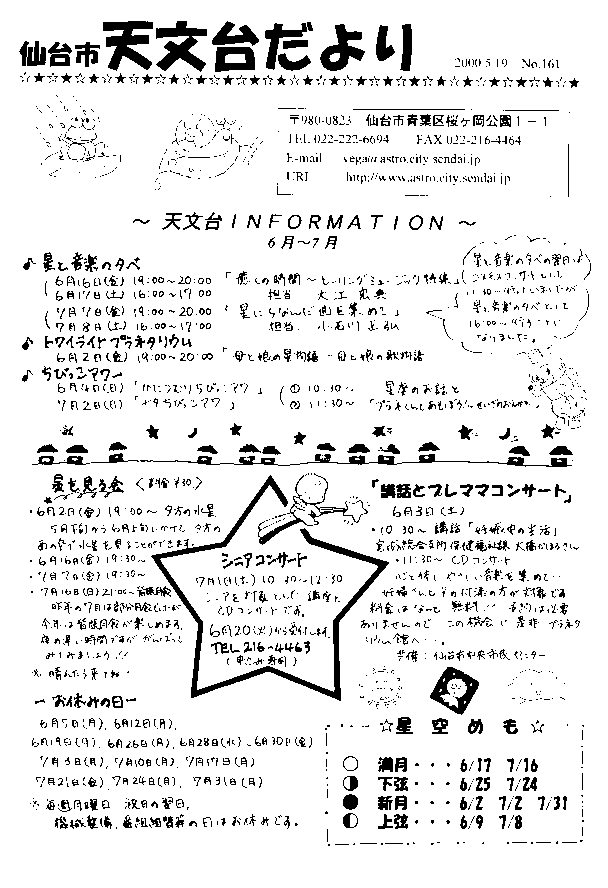 仙台市 天文台だより 2000.5.19 No.161
〒980-0823 仙台市青葉区桜ヶ岡公園1-1
TEL 022-222-6694 FAX 022-216-4464
E-mail vega@astro.city.sendai.jp
URI http://www.astro.city.sendai.jp
～ 天文台INFORMATION ～
6月～7月
♪ 星と音楽の夕べ
6月16日(金) 19:00～20:00 「癒しの時間～ヒーリングミュージック特集」
6月17日(土) 16:00～17:00 担当 大江宏典
7月7日(金) 19:00～20:00 「星にちなんだ曲を集めて」
7月8日(土) 16:00～17:00 担当
星と音楽の夕べの翌日は
11:30～
星と音楽の夕べとして
16:00～行うことに
なりました。
♪ トワイライトプラネタリウム
6月2日(金) 19:00～20:00 「母と娘の星物語－母と娘の歌物語
♪ ちびっこアワー
6月4日(日) 「かたつむりちびっこアワー」 ① 10:30～ 星座のお話と
7月2日(日) 「七夕ちびっこアワー」 ② 11:30～
星を見る会 〈料金¥30〉
・6月2日(金) 19:00～ 夕方の水星
5月下旬から6月上旬にかけて 夕方の
西の空で水星を見ることができます。
・6月16日(金) 19:30～
・7月7日(金) 19:30～
・7月16日(日) 21:00～ 皆既月食
昨年の7月は部分月食でしたが
今年は皆既月食が楽しめます。
夜の遅い時間ですが がんばって
みてみましょう!!
※ 晴れたら来てね!
シニアコンサート
7月1日(土) 10:30～12:30
シニアを対象とした 講座と
CDコンサートです。
6月20日(火)から受付します。
TEL 216-4463
「講話とプレママコンサート」
6月3日(土)
・10:30～ 講話 「妊娠中の生活」
・11:30～ CDコンサート
心と体にやさしい音楽を集めて…
妊婦さんとその付添の方が対象です
料金はなーんと 無料!! 予約は必要
ありませんので この機会に 是非 プラネタ
リウム館へ…。
共催: 仙台市中央市民センター
－ お休みの日 －
6月5日(月)、6月12日(月)、
6月19日(月)、6月26日(月)、6月28日(水)～6月30日(金)
7月3日(月)、7月10日(月)、7月17日(月)
7月21日(金)、7月24日(月)、7月31日(月)
※ 毎週月曜日 祝日の翌日、
機械整備、番組組替等の日はお休みです。
☆星空めも☆
○ 満月・・・6/17 7/16
下弦・・・6/25 7/24
● 新月・・・6/2 7/2 7/31
上弦・・・6/9 7/8